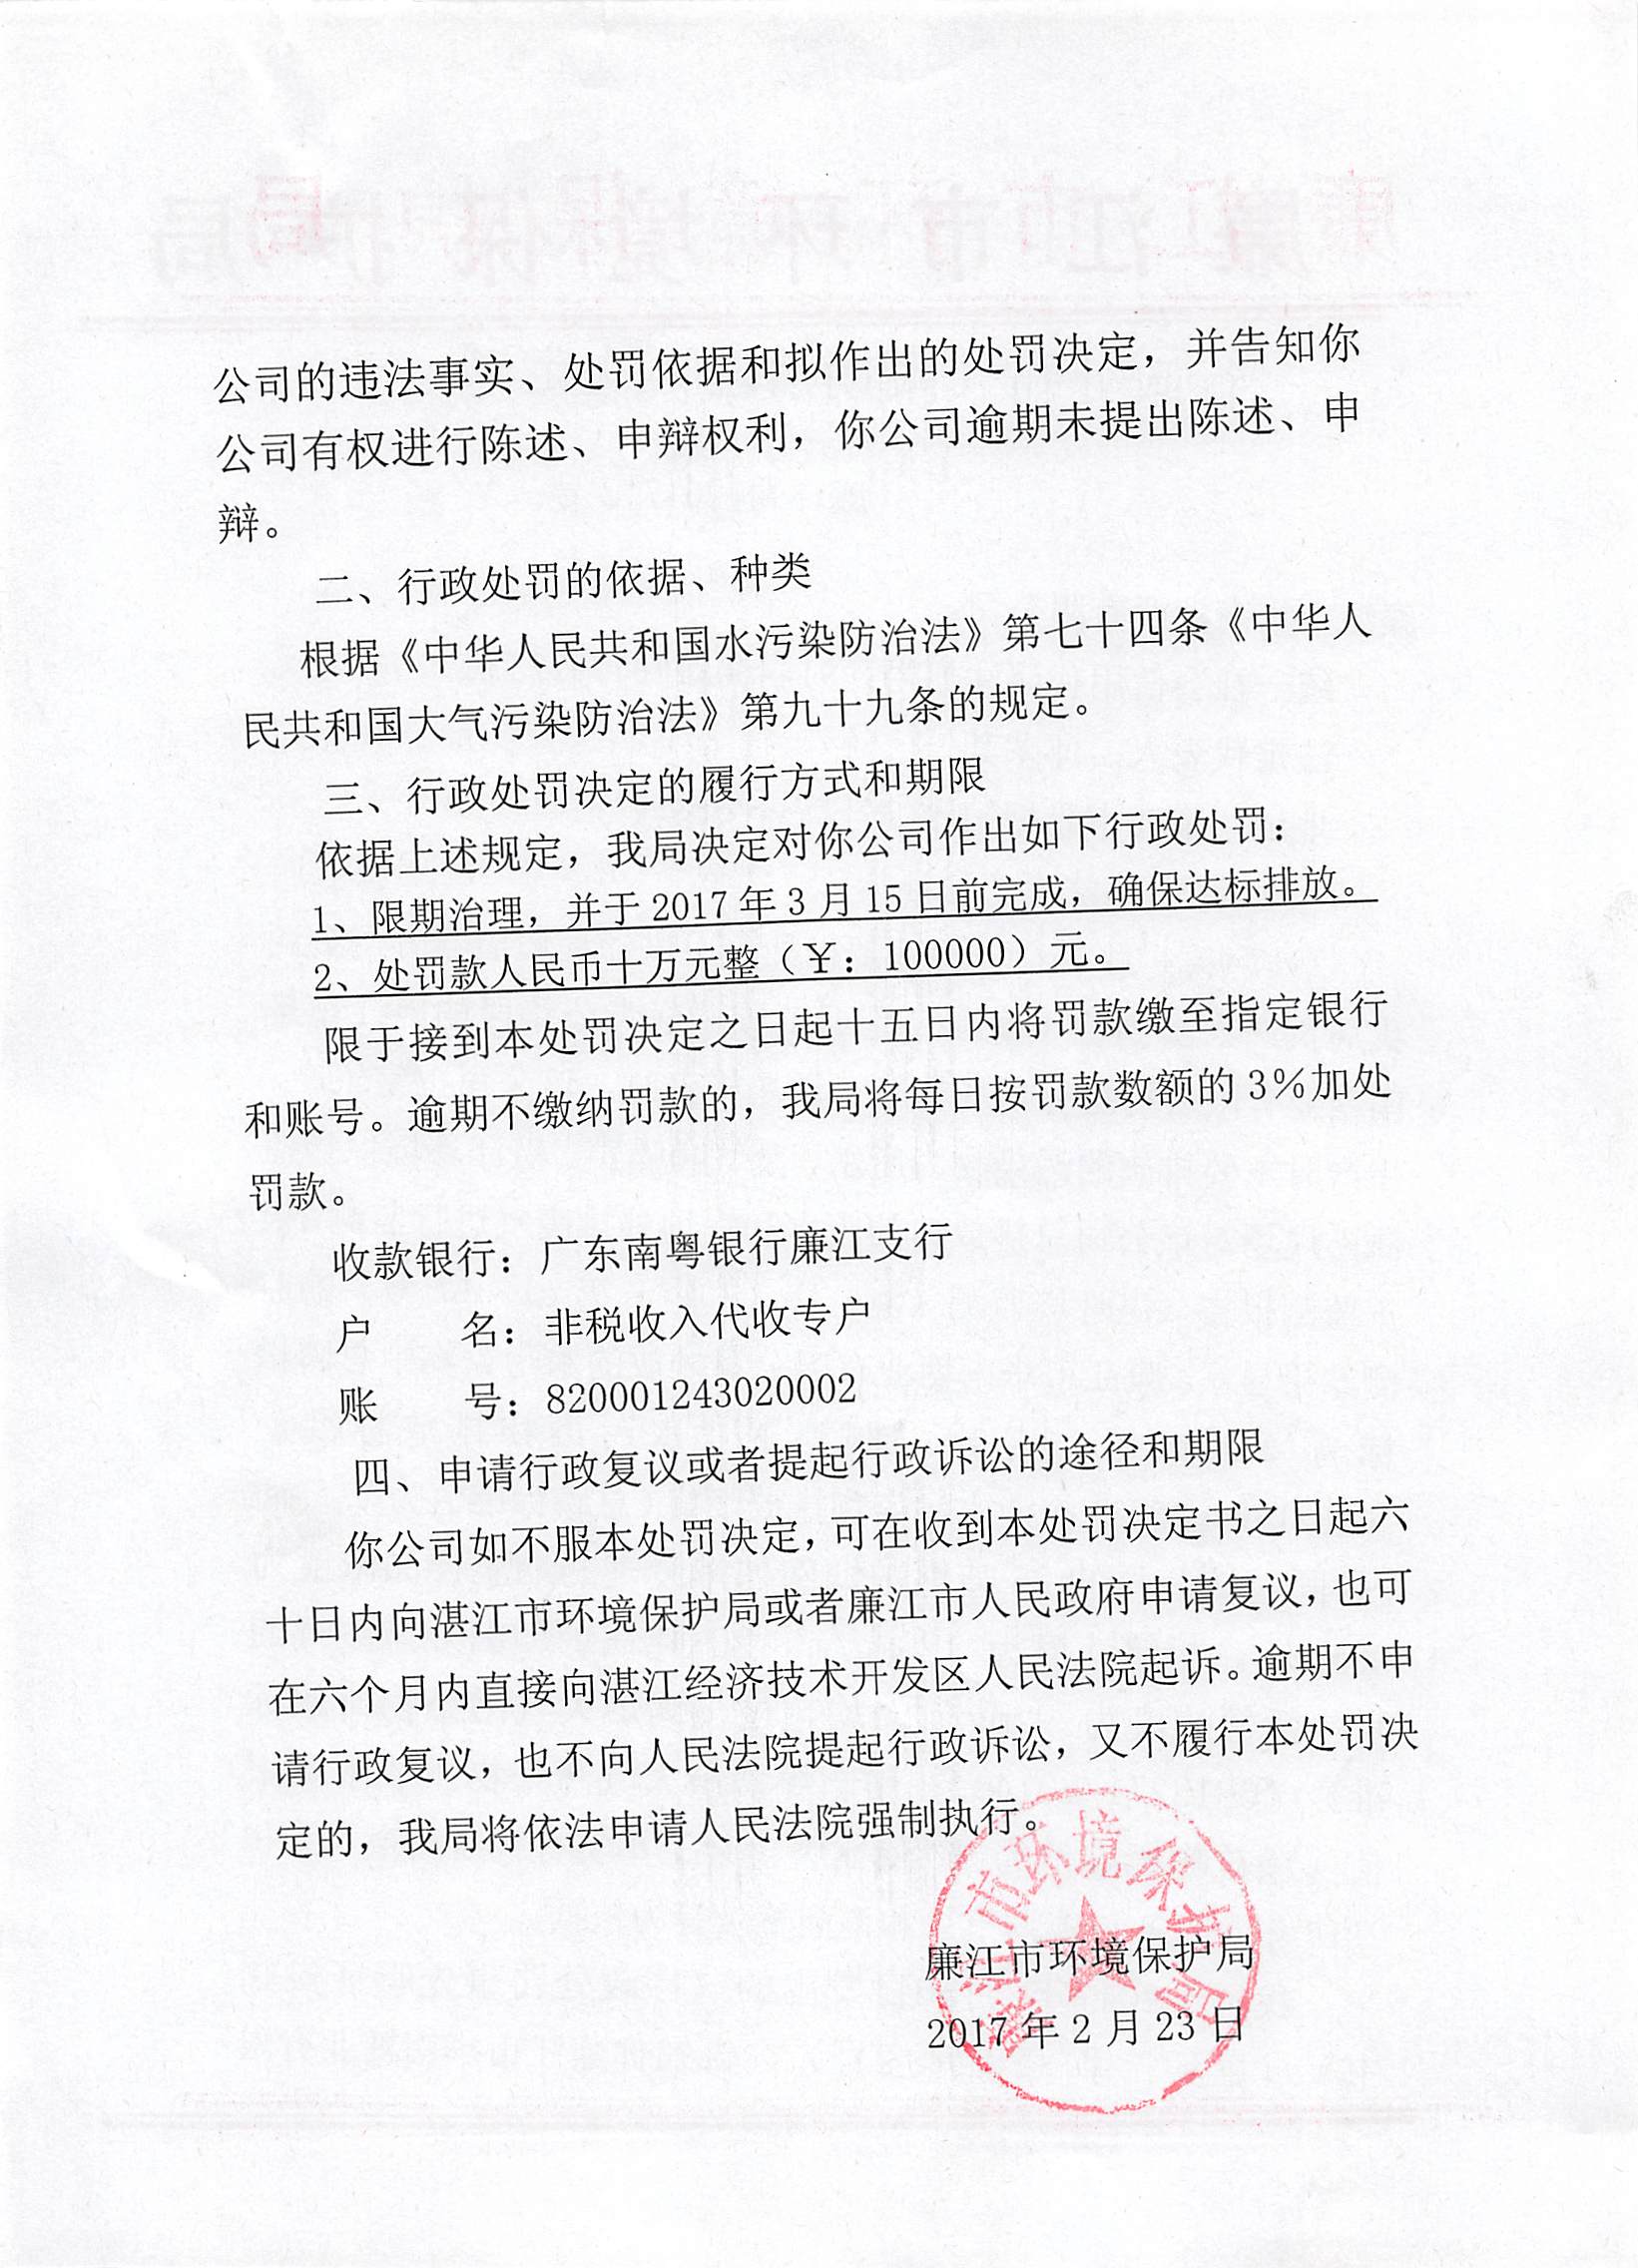 公司的违法事实、处罚依据和拟作出的处罚决定，并告知你
公司有权进行陈述、申辩权利，你公司逾期未提出陈述、申
辩。
二、行政处罚的依据、种类
根据《中华人民共和国水污染防治法》第七十四条《中华人
民共和国大气污染防治法》第九十九条的规定。
三、行政处罚决定的履行方式和期限
依据上述规定，我局决定对你公司作出如下行政处罚：
1、限期治理，并于 2017 年 3 月 15 日前完成，确保达标排放。
2、处罚款人民币十万元整（￥：100000）元。
限于接到本处罚决定之日起十五日内将罚款缴至指定银行
和账号。逾期不缴纳罚款的，我局将每日按罚款数额的 3%加处
罚款。
收款银行：广东南粤银行廉江支行
户 名：非税收入代收专户
账 号：820001243020002
四、申请行政复议或者提起行政诉讼的途径和期限
你公司如不服本处罚决定，可在收到本处罚决定书之日起六
十日内向湛江市环境保护局或者廉江市人民政府申请复议，也可
在六个月内直接向湛江经济技术开发区人民法院起诉。逾期不申
请行政复议，也不向人民法院提起行政诉讼，又不履行本处罚决
定的，我局将依法申请人民法院强制执行。
廉江市环境保护局
廉江市环境保护局
2017 年 2 月 23 日